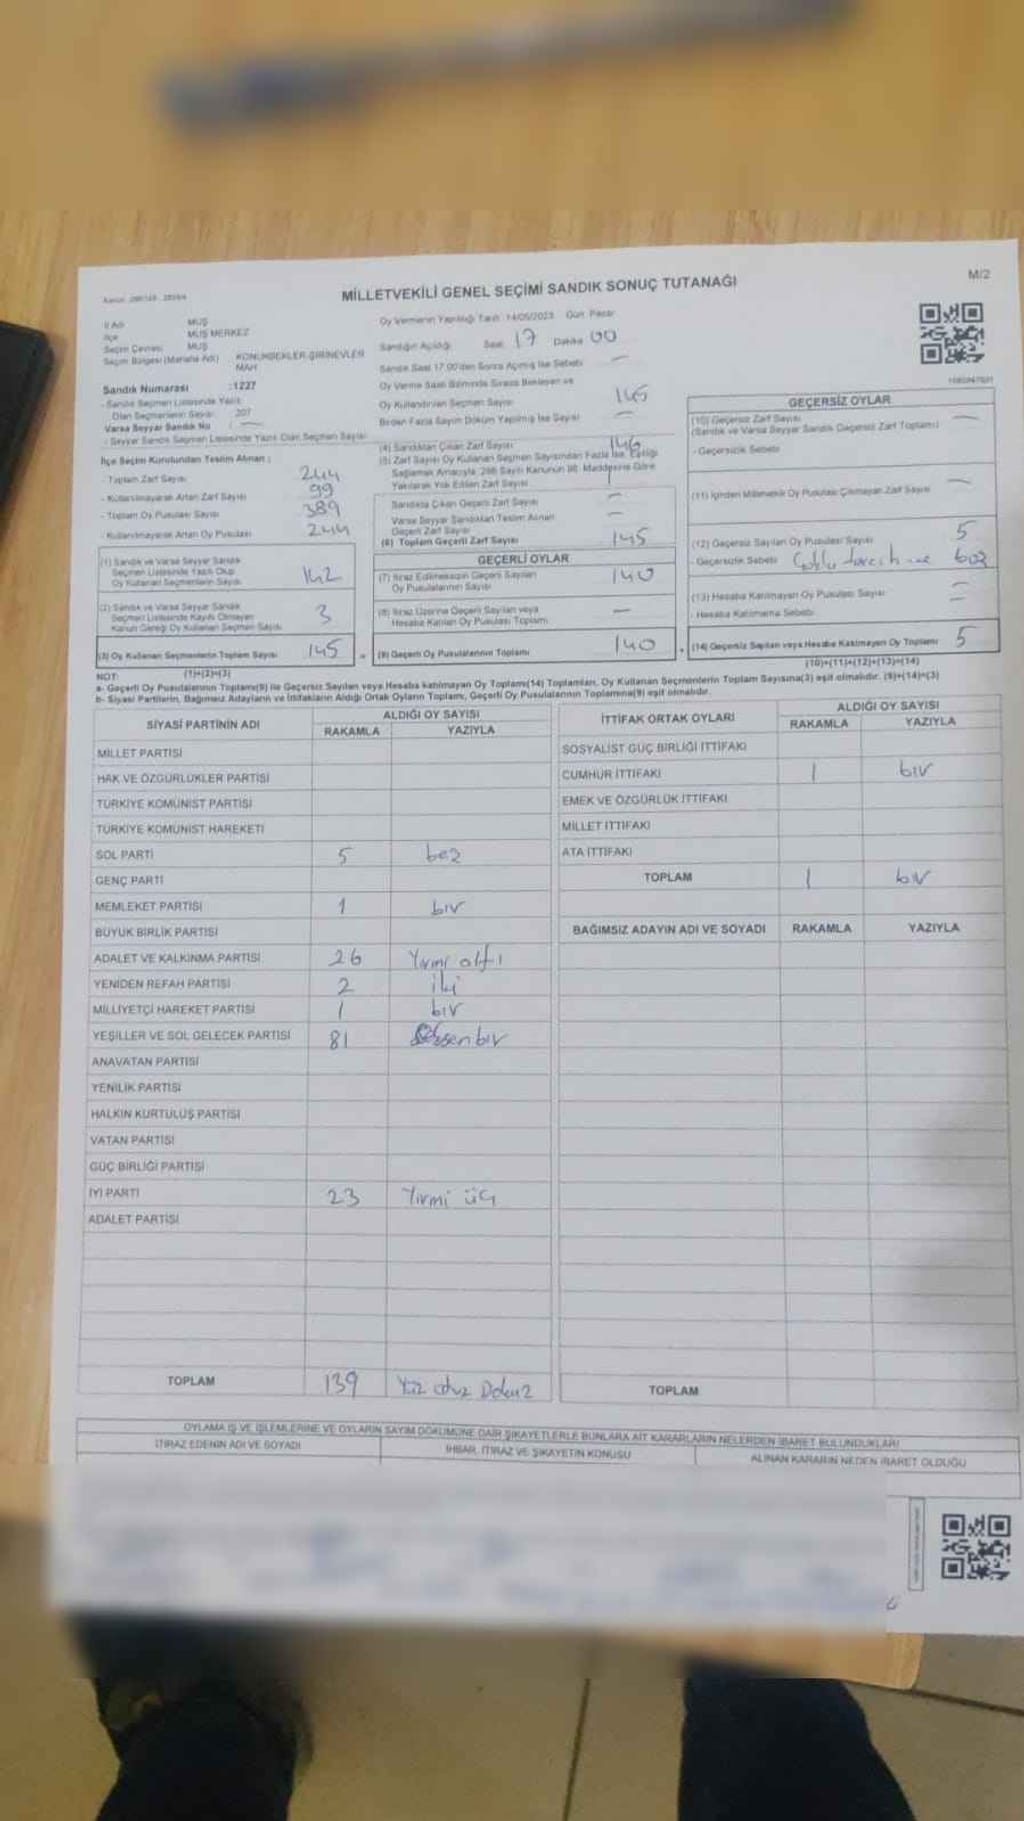 MİLLETVEKİLİ GENEL SEÇİMİ SANDIK SONUÇ TUTANAĞI
M/2
İl Adı MUŞ
İlçe MUŞ MERKEZ
Seçim Çevresi MUŞ
Seçim Bölgesi (Mahalle Adı) KONUKBEKLER-ŞİRİNEVLER MAH
Sandık Numarası :1227
- Sandık Seçmen Listesinde Yazılı
Olan Seçmenlerin Sayısı 207
Varsa Seyyar Sandık No : —
- Seyyar Sandık Seçmen Listesinde Yazılı Olan Seçmen Sayısı
İlçe Seçim Kurulundan Teslim Alınan :
- Toplam Zarf Sayısı 244
- Kullanılmayarak Artan Zarf Sayısı 99
- Toplam Oy Pusulası Sayısı 389
- Kullanılmayarak Artan Oy Pusulası 244
(1) Sandık ve Varsa Seyyar Sandık
Seçmen Listesinde Yazılı Olup
Oy Kullanan Seçmenlerin Sayısı 142
(2) Sandık ve Varsa Seyyar Sandık
Seçmen Listesinde Kayıtlı Olmayan
Kanun Gereği Oy Kullanan Seçmen Sayısı 3
(3) Oy Kullanan Seçmenlerin Toplam Sayısı 145
(1)+(2)=(3)
Oy Vermenin Yapıldığı Tarih: 14/05/2023 Gün: Pazar
Sandığın Açıldığı Saat 17 Dakika 00
Sandık Saat 17.00'den Sonra Açılmış İse Sebebi —
Oy Verme Saati Bitiminde Sırada Bekleyen ve
Oy Kullandırılan Seçmen Sayısı 145
Birden Fazla Sayım Döküm Yapılmış İse Sayısı —
(4) Sandıktan Çıkan Zarf Sayısı 146
(5) Zarf Sayısı Oy Kullanan Seçmen Sayısından Fazla İse, Eşitliği
Sağlamak Amacıyla, 298 Sayılı Kanunun 98. Maddesine Göre
Yakılarak Yok Edilen Zarf Sayısı 1
Sandıkta Çıkan Geçerli Zarf Sayısı —
Varsa Seyyar Sandıktan Teslim Alınan
Geçerli Zarf Sayısı —
(6) Toplam Geçerli Zarf Sayısı 145
GEÇERLİ OYLAR
(7) İtiraz Edilmeksizin Geçerli Sayılan
Oy Pusulalarının Sayısı 140
(8) İtiraz Üzerine Geçerli Sayılan veya
Hesaba Katılan Oy Pusulası Toplamı —
(9) Geçerli Oy Pusulalarının Toplamı 140
GEÇERSİZ OYLAR
(10) Geçersiz Zarf Sayısı —
(Sandık ve Varsa Seyyar Sandık Geçersiz Zarf Toplamı)
- Geçersizlik Sebebi
(11) İçinden Milletvekili Oy Pusulası Çıkmayan Zarf Sayısı —
(12) Geçersiz Sayılan Oy Pusulası Sayısı 5
- Geçersizlik Sebebi Çoklu tercih ve boş
(13) Hesaba Katılmayan Oy Pusulası Sayısı —
- Hesaba Katılmama Sebebi —
(14) Geçersiz Sayılan veya Hesaba Katılmayan Oy Toplamı 5
(10)+(11)+(12)+(13)=(14)
NOT:
a- Geçerli Oy Pusulalarının Toplamı(9) ile Geçersiz Sayılan veya Hesaba katılmayan Oy Toplamı(14) Toplamları, Oy Kullanan Seçmenlerin Toplam Sayısına(3) eşit olmalıdır. (9)+(14)=(3)
b- Siyasi Partilerin, Bağımsız Adayların ve İttifakların Aldığı Ortak Oyların Toplamı, Geçerli Oy Pusulalarının Toplamına(9) eşit olmalıdır.
SİYASİ PARTİNİN ADI ALDIĞI OY SAYISI
RAKAMLA YAZIYLA
MİLLET PARTİSİ
HAK VE ÖZGÜRLÜKLER PARTİSİ
TÜRKİYE KOMÜNİST PARTİSİ
TÜRKİYE KOMÜNİST HAREKETİ
SOL PARTİ 5 beş
GENÇ PARTİ
MEMLEKET PARTİSİ 1 bir
BÜYÜK BİRLİK PARTİSİ
ADALET VE KALKINMA PARTİSİ 26 Yirmi altı
YENİDEN REFAH PARTİSİ 2 iki
MİLLİYETÇİ HAREKET PARTİSİ 1 bir
YEŞİLLER VE SOL GELECEK PARTİSİ 81 Seksenbir
ANAVATAN PARTİSİ
YENİLİK PARTİSİ
HALKIN KURTULUŞ PARTİSİ
VATAN PARTİSİ
GÜÇ BİRLİĞİ PARTİSİ
İYİ PARTİ 23 Yirmi üç
ADALET PARTİSİ
TOPLAM 139 Yüz otuz Dokuz
İTTİFAK ORTAK OYLARI ALDIĞI OY SAYISI
RAKAMLA YAZIYLA
SOSYALİST GÜÇ BİRLİĞİ İTTİFAKI
CUMHUR İTTİFAKI 1 bir
EMEK VE ÖZGÜRLÜK İTTİFAKI
MİLLET İTTİFAKI
ATA İTTİFAKI
TOPLAM 1 bir
BAĞIMSIZ ADAYIN ADI VE SOYADI RAKAMLA YAZIYLA
TOPLAM
OYLAMA İŞ VE İŞLEMLERİNE VE OYLARIN SAYIM DÖKÜMÜNE DAİR ŞİKAYETLERLE BUNLARA AİT KARARLARIN NELERDEN İBARET BULUNDUKLARI
İTİRAZ EDENİN ADI VE SOYADI İHBAR, İTİRAZ VE ŞİKAYETİN KONUSU ALINAN KARARIN NEDEN İBARET OLDUĞU